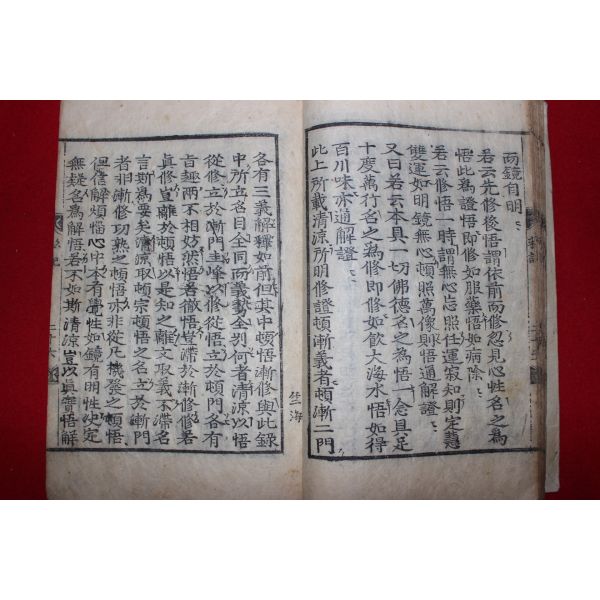 而鏡自明
若云先修後悟謂依前而修忽見心性名之為
悟此為證悟即修如服藥悟如病除
若云修悟一時謂無心忘照任運寂知則定慧
雙運如明鏡無心頓照萬像則悟通解證
又曰若云本具一切佛德名之為悟一念具足
十度萬行名之為修即修如飲大海水悟如得
百川味亦通解證
此上所載清涼所明修證頓漸義者頓漸二門
各有三義解釋如前但其中頓悟漸修與此錄
中所立名目全同而義勢全別何者清涼以悟
從修立於漸門圭峰以修從悟立於頓門各有
旨趣兩不相妨然悟若徹悟豈滯於漸修修若
眞修豈離於頓悟以是知之離文取義不滯名
言斯為要矣清涼取頓宗頓悟之名立於漸門
者非漸修功熟之頓悟亦非從凡機發之頓悟
但信解煩惱心中本有覺性如鏡有明性決定
無疑名為解悟若不如斯清涼豈以眞實悟解
二十六